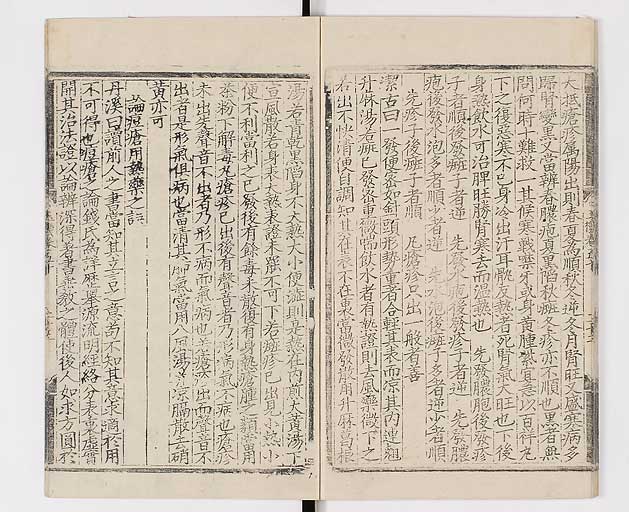 大抵瘡疹屬陽出則春夏爲順秋冬逆冬月腎旺又盛寒病多
歸腎變黑又當辨春膿疱夏黑陷秋斑冬疹亦不順也黑者無
問何時十難救一其候寒戰噤牙或身黃腫紫宜急以百祥丸
下之復惡寒不已身冷出汗耳骫反熱者死腎氣大旺也下後
身熱飲水可治脾旺勝腎寒去而溫熱也 先發膿胞後發疹
子者順 先發水疱後發疹子者逆 先發膿
疱後發水疱多者順少者逆 先水疱後斑子多者逆少者順
先疹子後斑子者順 凡瘡疹只出一般者善
潔古曰一發便密如針頭形勢重者合輕其表而凉其內連翹
升麻湯若斑已發密重微喘飲水者有熱證則去風藥微下之
若出不快清便自調知其在表不在裏當微發散用升麻葛根
湯若青乾黑陷身不大熱大小便澁則是熱在內煎大黃湯下
宣風散若身表大熱表證未罷不可下若斑疹已出見小熱小
便不利當利之已發後有餘毒未散復有身熱瘡腫之類當用
茶粉下解毒丸瘡疹已出後有聲音者乃形病氣不病也瘡疹
未出先聲音不出者乃形不病而氣病也若瘡疹出而聲音不
出者是形氣俱病也當淸其肺氣當用八風湯或凉膈散去硝
黃亦可
論痘瘡用熱藥之誤
丹溪曰讀前人之書當知其立言之意苟不知其意求適於用
不可得也痘瘡之論錢氏爲詳歷擧源流明經絡分表裏虛實
開其治法證以論辯深得著書垂敎之體使後人如求方圓於